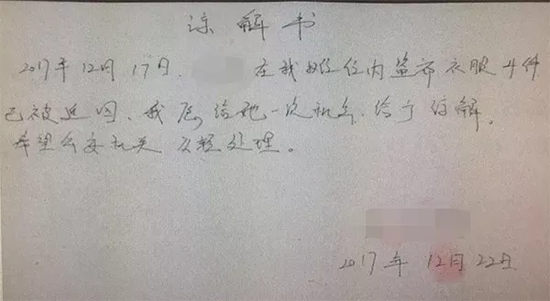 谅解书
2017年12月17日, 在我单位内盗窃衣服4件
已被追回、我愿给她一次机会、给予谅解。
希望公安机关 从轻处理。
2017年12月22日